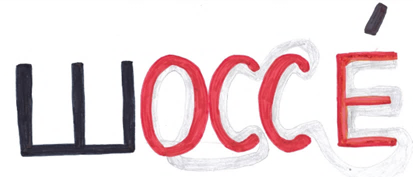 шоссе́